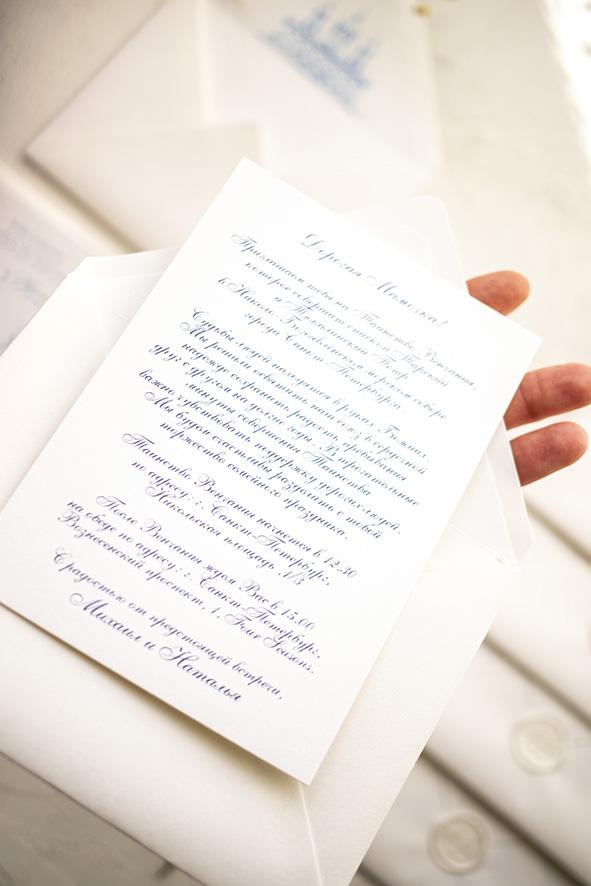 Дорогая Мамочка!
Приглашаем тебя на Таинство Венчания,
которое совершит епископ Царский
и Трокальский Петр
в Николо-Богоявленском морском соборе
города Санкт-Петербурга.
Судьбы людей находятся в руках Божиих.
Мы решили освятить наш союз в горячей
надежде сохранить радость пребывания
друг с другом на долгие годы. В трогательные
минуты совершения Таинства
важно чувствовать поддержку дорогих людей.
Мы будем счастливы разделить с тобой
торжество семейного праздника.
Таинство Венчания начнется в 12.30
по адресу: г. Санкт-Петербург,
Никольская площадь, 1/3
После Венчания ждем Вас в 15.00
на обеде по адресу: г. Санкт-Петербург,
Вознесенский проспект, 1, Four Seasons.
С радостью от предстоящей встречи,
Михаил и Наталья